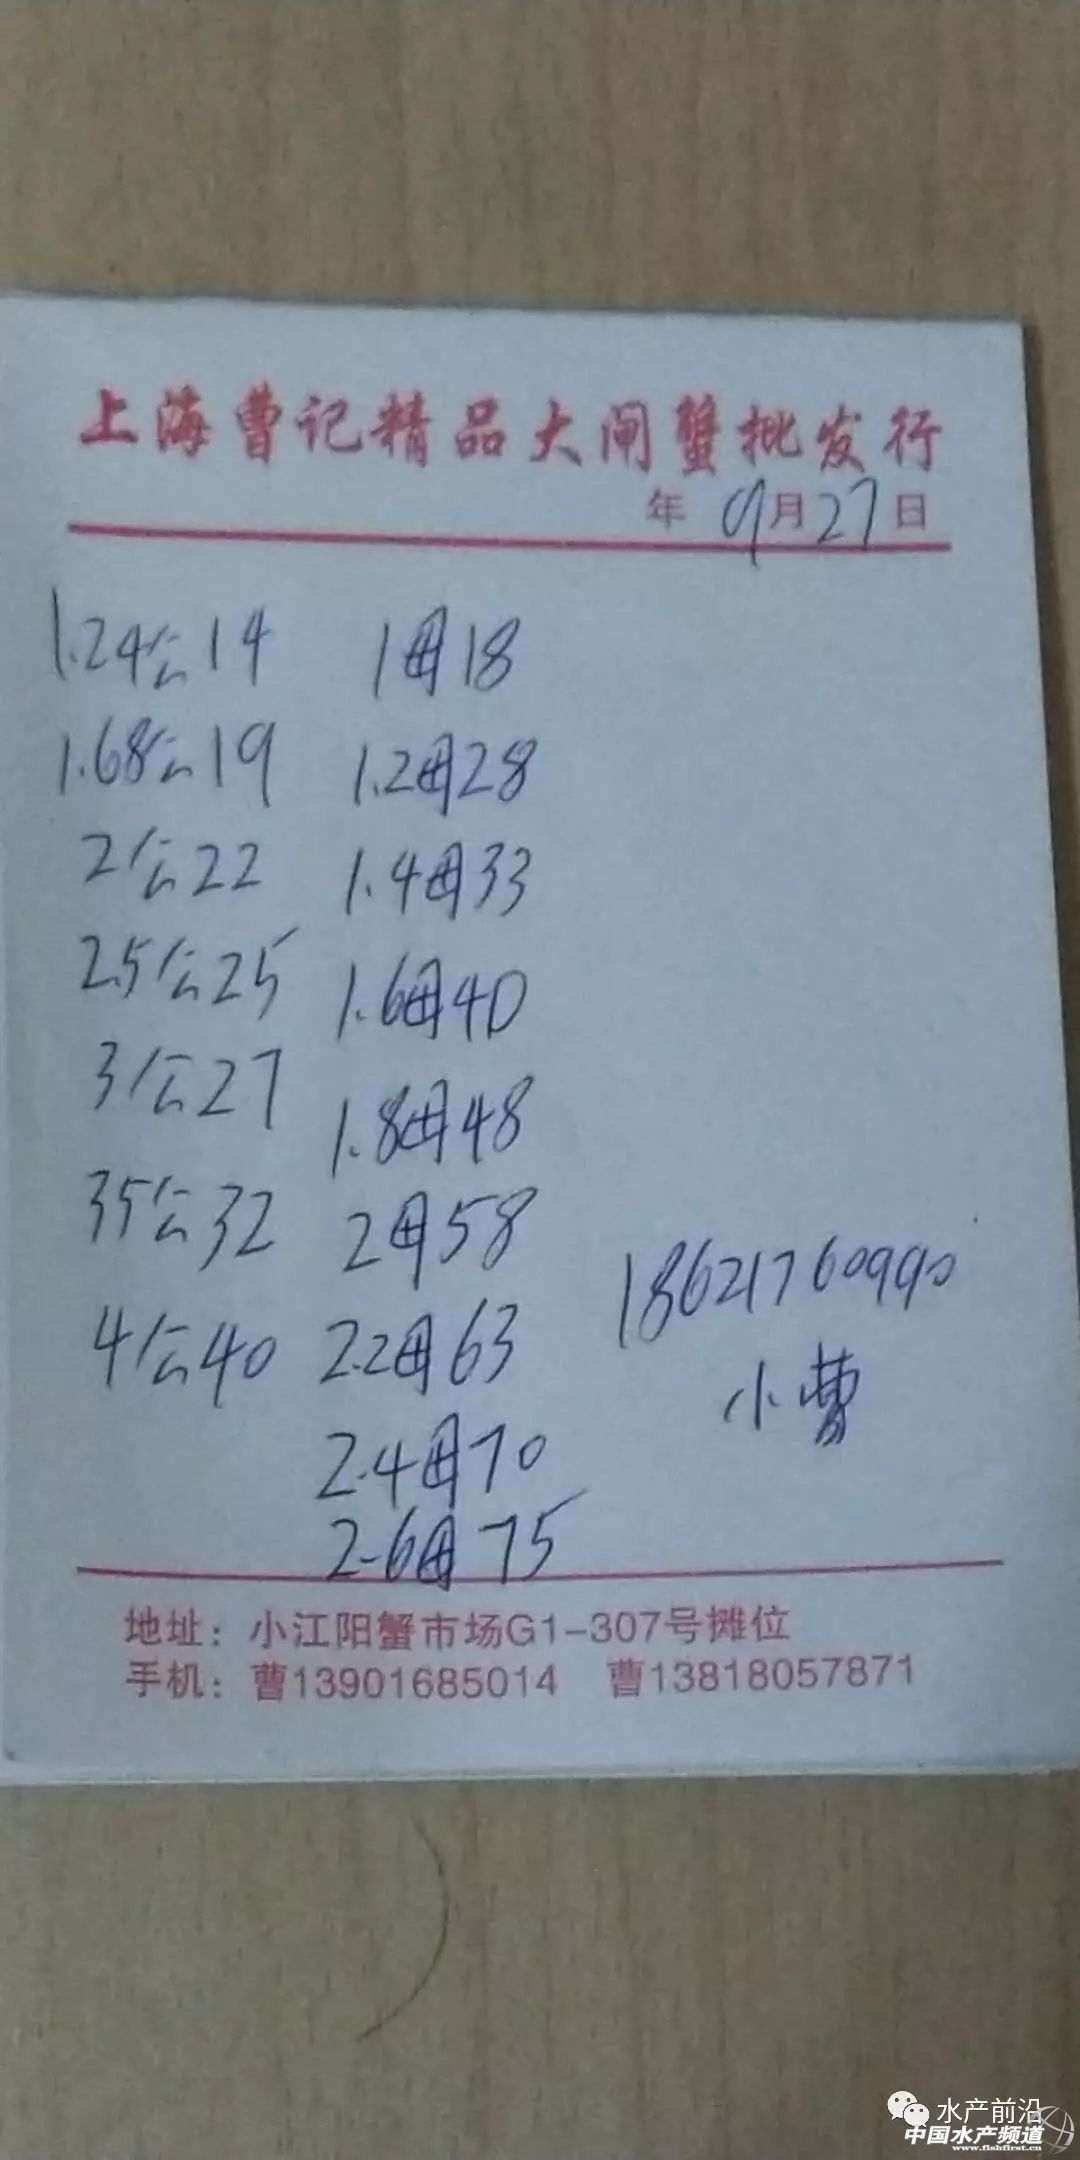 上海曹记精品大闸蟹批发行
年 9月27日
1.24公14 1母18
1.68公19 1.2母28
2公22 1.4母33
2.5公25 1.6母40
3公27 1.8母48
35公32 2母58
4公40 2.2母63
2.4母70
2-6母75
18621760990
小曹
地址：小江阳蟹市场G1-307号摊位
手机：曹13901685014 曹13818057871
水产前沿
中国水产频道
www.fishfirst.cn